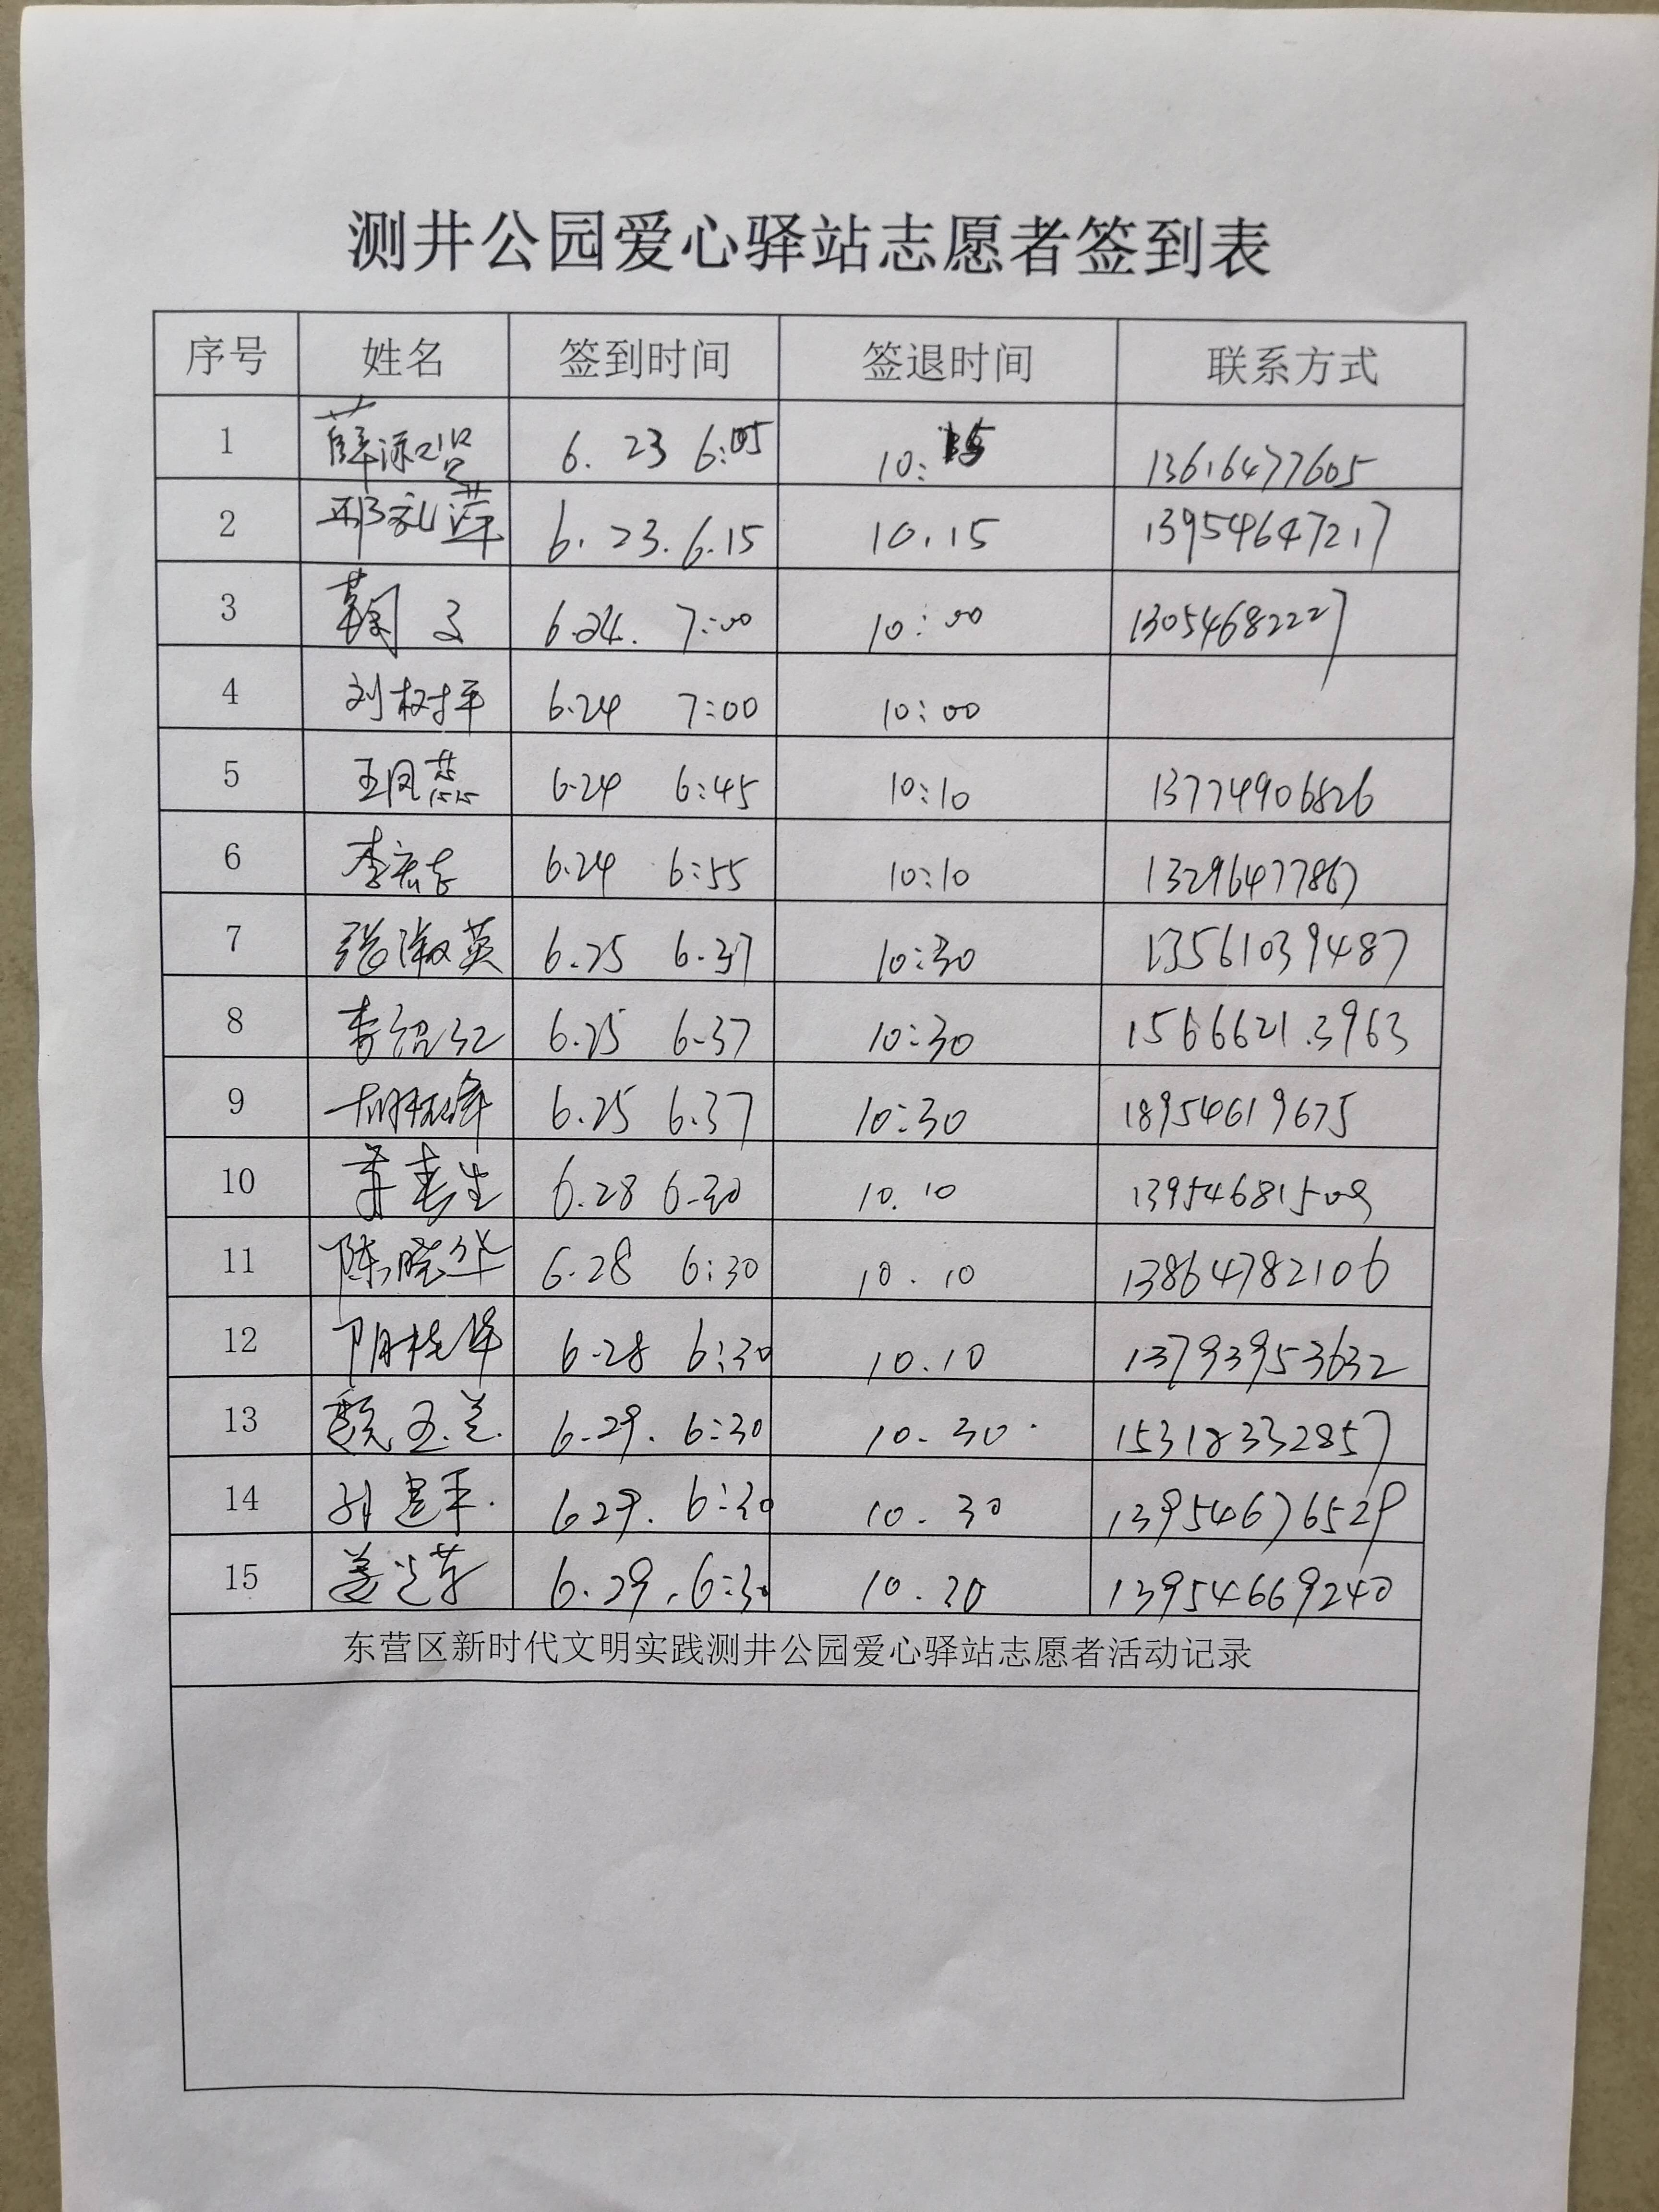 测井公园爱心驿站志愿者签到表
序号 姓名 签到时间 签退时间 联系方式
1 6. 23 6:05 10:15 13616477605
2 邢礼萍 6. 23. 6.15 10.15 13954647217
3 6.24. 7:00 10:00 13054682227
4 刘树平 6.24 7:00 10:00
5 王凤蕊 6.24 6:45 10:10 13774906826
6 李宏志 6.24 6:55 10:10 13296477867
7 张淑英 6.25 6.37 10:30 13561039487
8 李绍红 6.25 6.37 10:30 1566621.3963
9 6.25 6.37 10:30 18954619675
10 6.28 6.30 10.10 13954681509
11 陈晓华 6.28 6:30 10.10 13864782106
12 6.28 6:30 10.10 13793953632
13 魏玉兰. 6.29. 6:30 10.30. 15318332857
14 6 29. 6:30 10.30 13954676529
15 6.29. 6:30 10.30 13954669240
东营区新时代文明实践测井公园爱心驿站志愿者活动记录